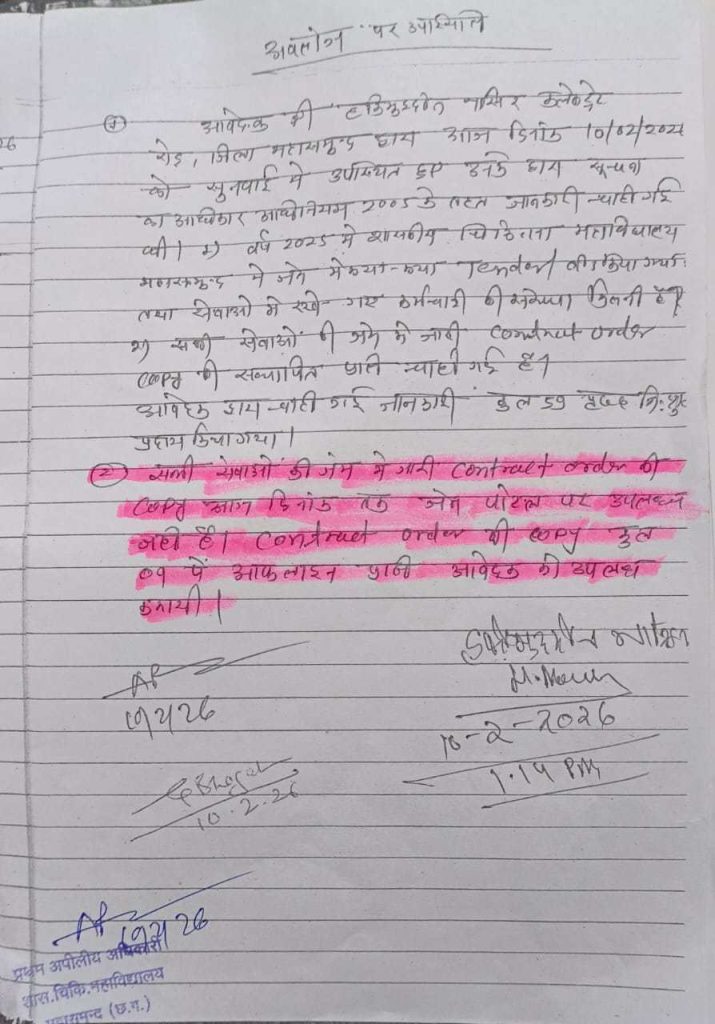 पर उपस्थिति
26
① आवेदक श्री हकिमुद्दीन नासिर कलेक्ट्रेट
रोड, जिला महासमुन्द द्वारा आज दिनांक 10/02/2026
को सुनवाई में उपस्थित हुए उनके द्वारा सूचना
का अधिकार अधिनियम 2005 के तहत जानकारी चाही गई
थी। 1) वर्ष 2025 में शासकीय चिकित्सा महाविद्यालय
महासमुन्द में जेम में क्या-क्या Tender किया गया
तथा सेवाओं में रखे गए कर्मचारी की संख्या कितनी है।
2) सभी सेवाओं की जेम में जारी contract order
copy की सत्यापित प्रति चाही गई है।
आवेदक द्वारा चाही गई जानकारी कुल 59 पृष्ठ
प्रदाय किया गया।
② सभी सेवाओं की जेम में जारी contract order की
copy आज दिनांक तक जेम पोर्टल पर उपलब्ध
नहीं है। contract order की copy कुल
09 में आफलाइन प्रति आवेदक को उपलब्ध
करायी।
हकिमुद्दीन नासिर
10-2-2026
1.14 PM
10.2.26
प्रथम अपीलीय अधिकारी
शास.चिकि.महाविद्यालय
महासमुन्द (छ.ग.)